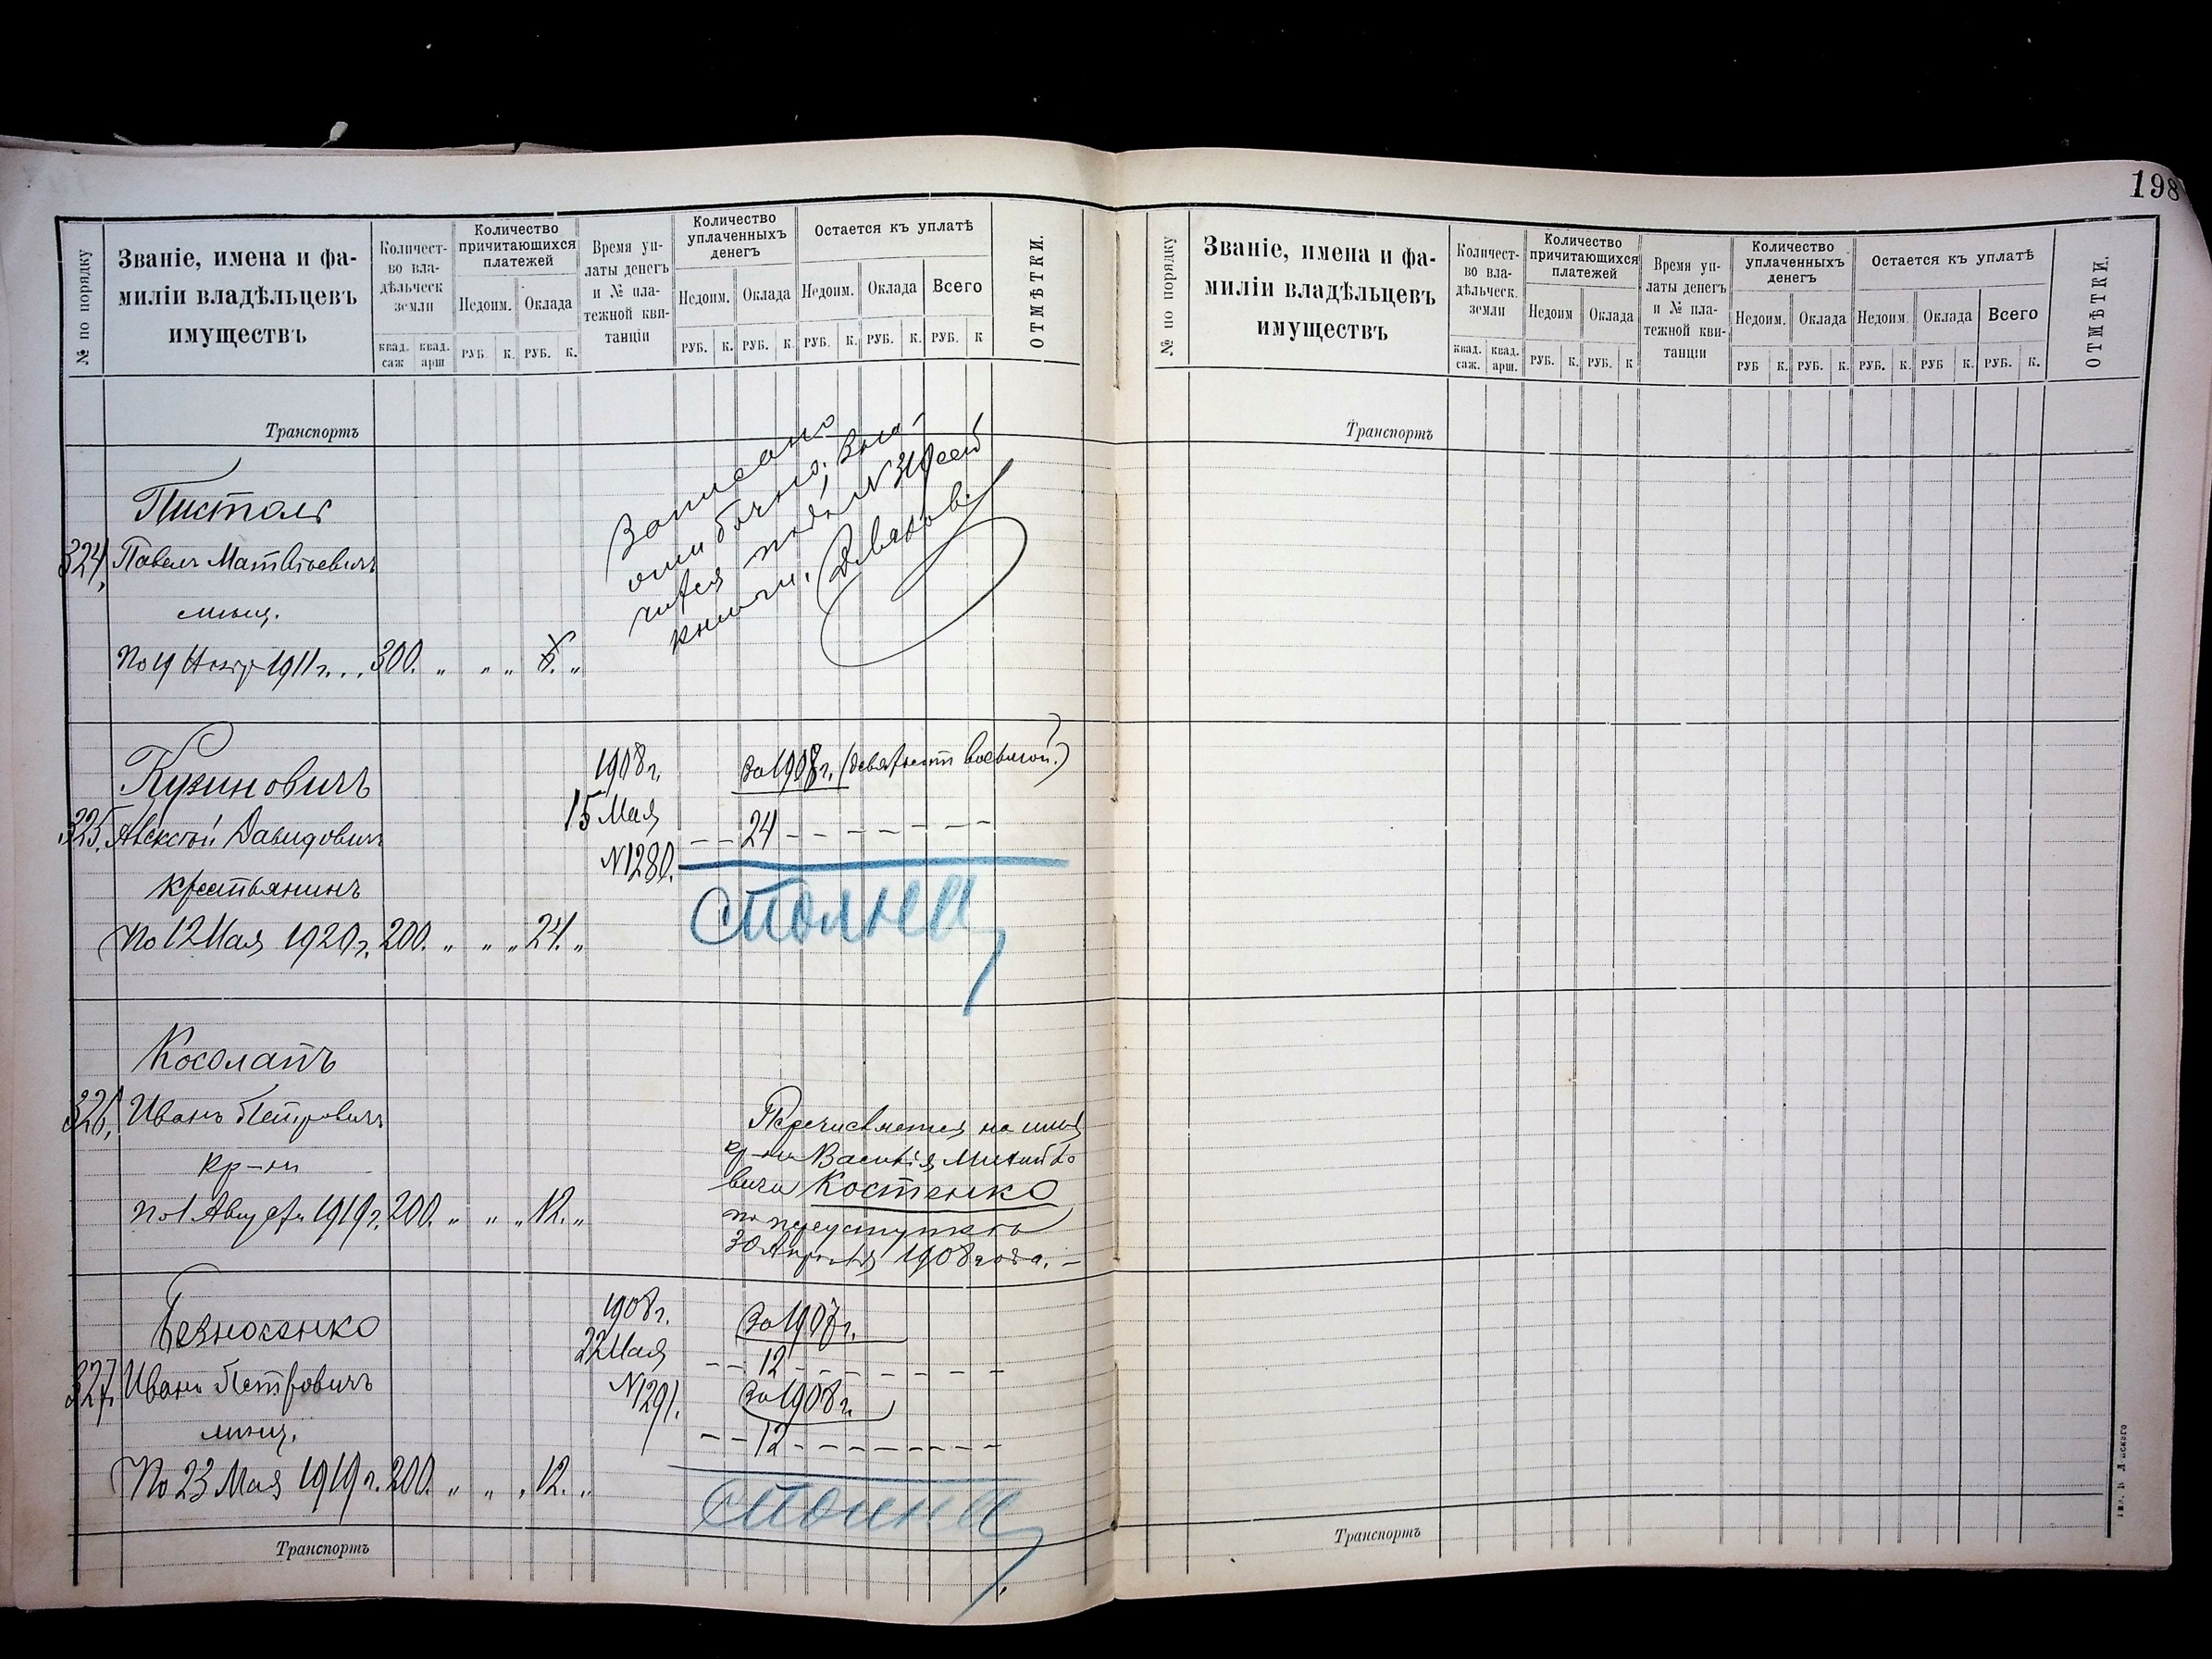 198
№ по порядку
Званіе, имена и фа-
миліи владѣльцевъ
имуществъ
Количест-
во вла-
дѣльческ
земли
квад. саж
квад. арш
Количество
причитающихся
платежей
Недоим. Оклада
РУБ. К. РУБ. К.
Время уп-
латы денегъ
и № пла-
тежной кви-
танціи
Количество
уплаченныхъ
денегъ
Недоим. Оклада
РУБ. К. РУБ. К.
Остается къ уплатѣ
Недоим. Оклада Всего
РУБ. К. РУБ. К. РУБ. К
ОТМѢТКИ.
Транспортъ
Пистоль
324, Павелъ Матвѣевичъ
мѣщ.
По 19 Нояр 1911 г... 300. „ „ „ „
Записано
ошибочно, Зна-
чится подъ № 310 сей
книги.
Кузиновичъ
325. Алексѣй Давидовичъ
крестьянинъ
По 12 Мая 1920 г. 200. „ „ „ 24. „
1908 г.
15 Мая
N 1280.
За 1908 г. (девятьсот восьмой.)
– – 24 – – – – – – – –
Косолапъ
326, Иванъ Петровичъ
кр-нъ
По 1 Августа 1919 г. 200. „ „ „ 12. „
Перечисляется на имя
кр-на Василія Михайло
вича Костенко
по переуступкѣ
30 Апрѣля 1908 года. –
Безносенко
327. Иванъ Петровичъ
мѣщ.
По 23 Мая 1919 г. 200. „ „ „ 12. „
1908 г.
22 Мая
N 1291.
За 1907 г.
– – 12 – – – – – – – –
За 1908 г.
– – 12 – – – – – – – –
Транспортъ
№ по порядку
Званіе, имена и фа-
миліи владѣльцевъ
имуществъ
Количест-
во вла-
дѣльческ.
земли
квад. саж.
квад. арш.
Количество
причитающихся
платежей
Недоим Оклада
РУБ. К. РУБ. К
Время уп-
латы денегъ
и № пла-
тежной кви-
танціи
Количество
уплаченныхъ
денегъ
Недоим. Оклада
РУБ К. РУБ. К.
Остается къ уплатѣ
Недоим. Оклада Всего
РУБ. К. РУБ К. РУБ. К.
ОТМѢТКИ.
Транспортъ
Транспортъ